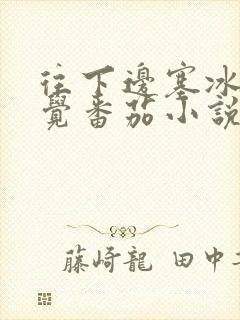 往下邊塞冰
覺番茄小說
藤崎龍 田中